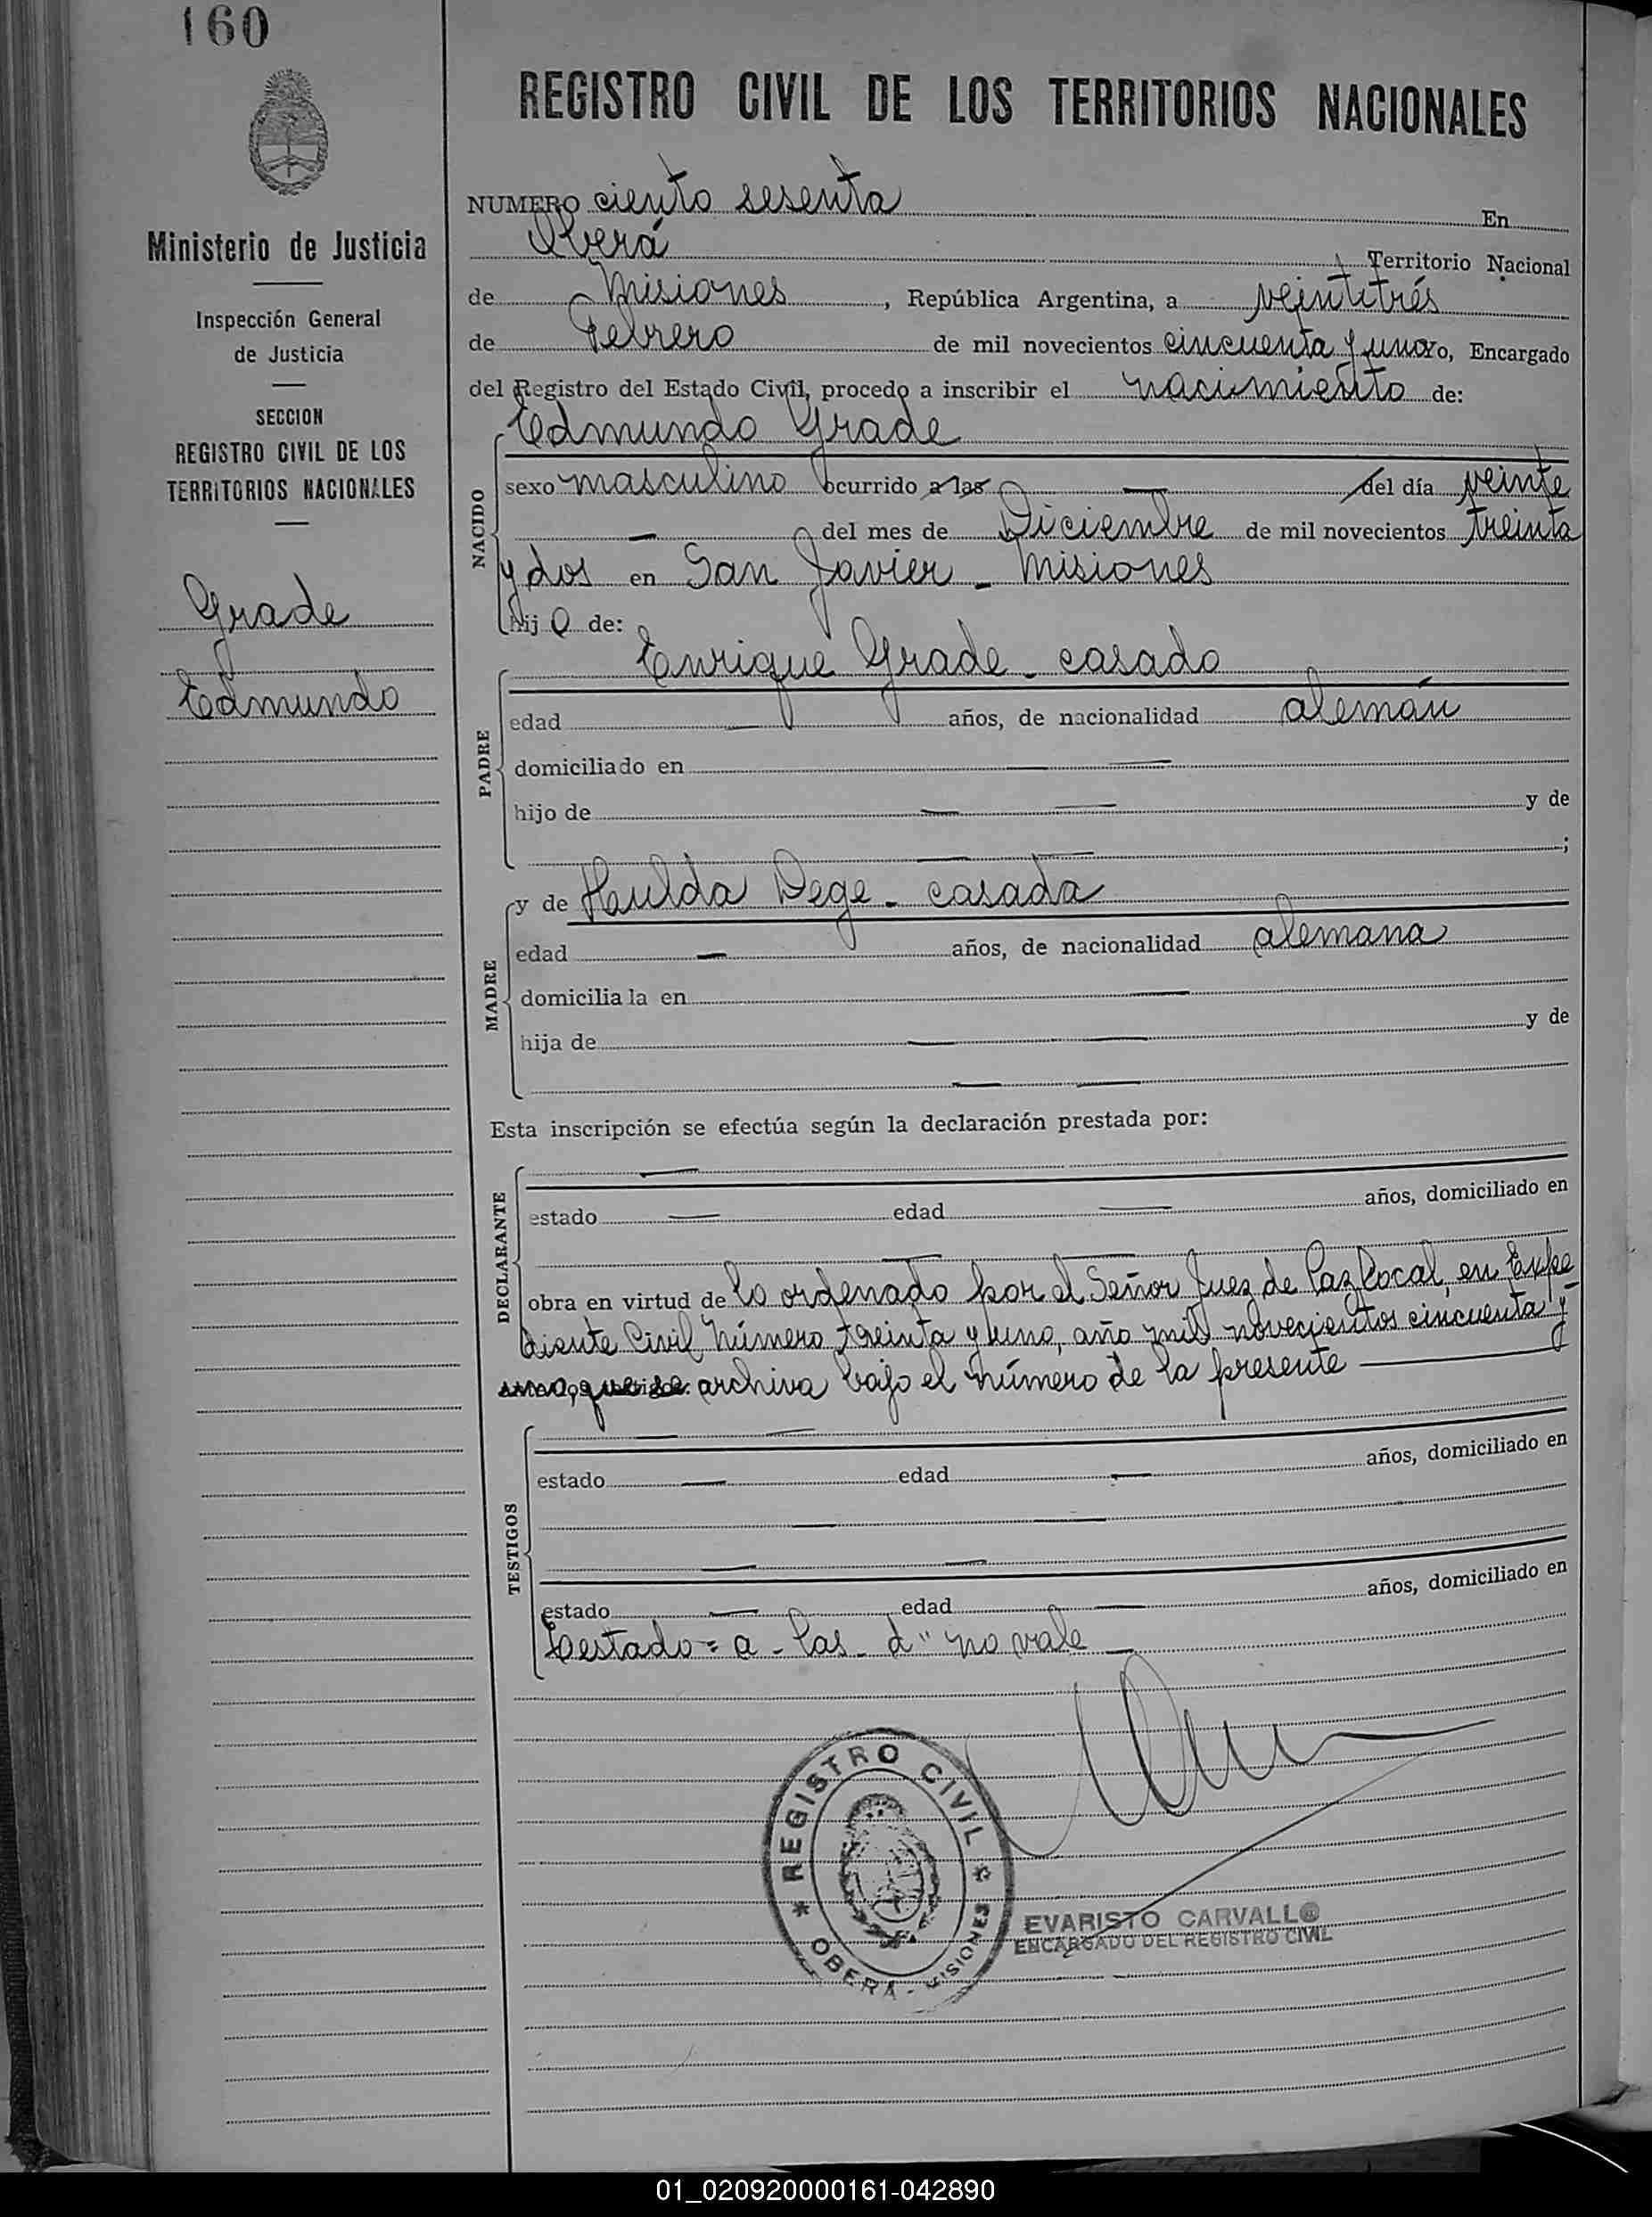 160
Ministerio de Justicia
Inspección General
de Justicia
SECCION
REGISTRO CIVIL DE LOS
TERRITORIOS NACIONALES
Grade
Edmundo
REGISTRO CIVIL DE LOS TERRITORIOS NACIONALES
NUMERO ciento sesenta En
Oberá Territorio Nacional
de Misiones, República Argentina, a veintitrés
de Febrero de mil novecientos cincuenta y uno yo, Encargado
del Registro del Estado Civil, procedo a inscribir el nacimiento de:
NACIDO
Edmundo Grade
sexo masculino ocurrido a las — del día veinte
— del mes de Diciembre de mil novecientos treinta
y dos en San Javier - Misiones
hijo de:
PADRE
Enrique Grade - casado
edad — años, de nacionalidad alemán
domiciliado en — —
hijo de — — y de
— — ;
MADRE
y de Hulda Dege - casada
edad — años, de nacionalidad alemana
domiciliada en —
hija de — — y de
— —
Esta inscripción se efectúa según la declaración prestada por:
DECLARANTE
—
estado — edad — años, domiciliado en
— —
obra en virtud de lo ordenado por el Señor Juez de Paz Local, en Expe
diente Civil Número treinta y uno, año mil novecientos cincuenta y
uno, que se archiva bajo el número de la presente —
TESTIGOS
— —
estado — edad — años, domiciliado en
— —
— —
estado — edad — años, domiciliado en
Testado = a - las - d" no vale —
REGISTRO CIVIL
OBERÁ - MISIONES
EVARISTO CARVALLO
ENCARGADO DEL REGISTRO CIVIL
01_020920000161-042890